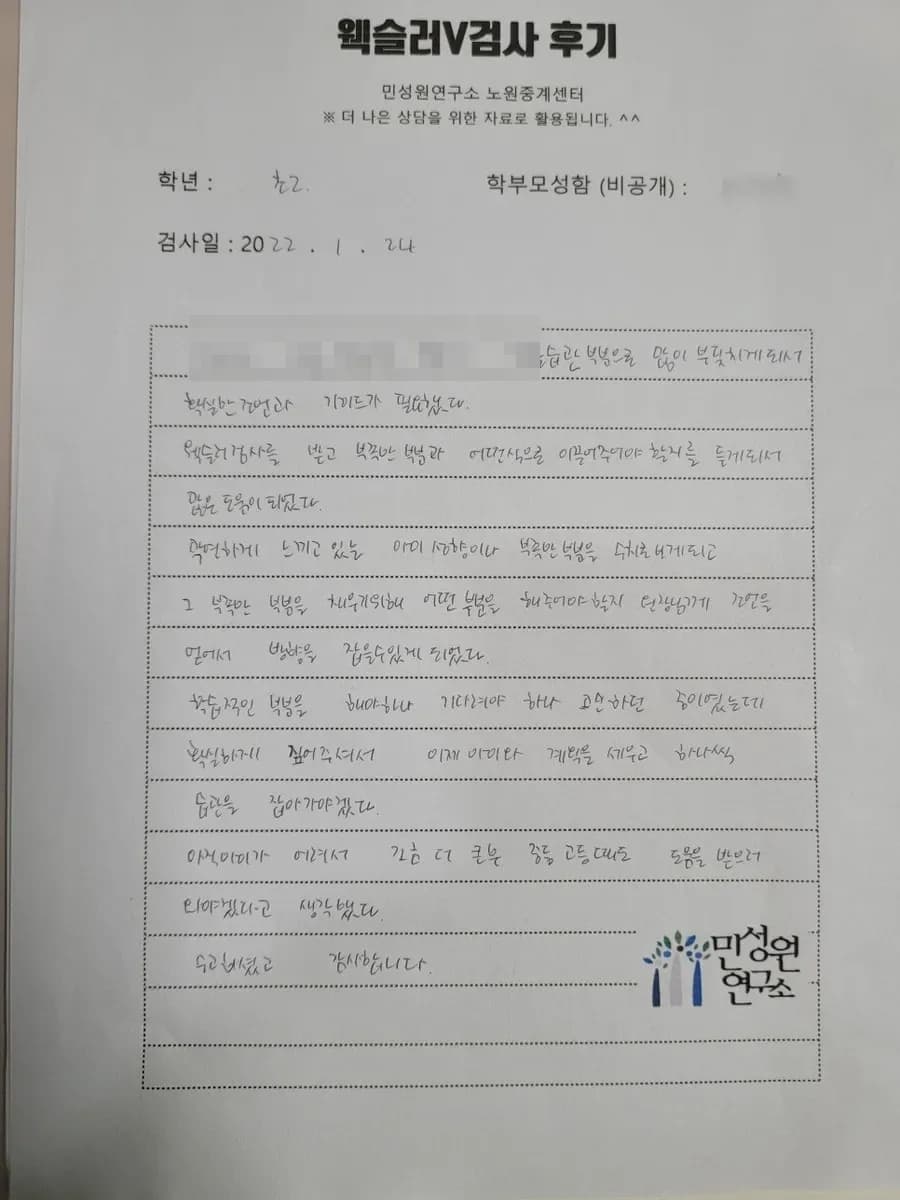 웩슬러V검사 후기
민성원연구소 노원중계센터
※ 더 나은 상담을 위한 자료로 활용됩니다. ^^
학년 : 초2. 학부모성함 (비공개) :
검사일 : 2022 . 1 . 24
습관 부분으로 많이 부딪치게되서
확실한 조언과 가이드가 필요했다.
웩슬러검사를 받고 부족한 부분과 어떤식으로 이끌어주어야 할지를 듣게되서
많은 도움이 되었다.
막연하게 느끼고 있는 아이 성향이나 부족한 부분을 수치로 보게되고
그 부족한 부분을 채우기위해 어떤 부분을 해주어야 할지 원장님께 조언을
얻어서 방향을 잡을수있게 되었다.
학습적인 부분을 해야하나 기다려야 하나 고민하던 중이였는데
확실하게 짚어주셔서 이제 아이와 계획을 세우고 하나씩
습관을 잡아가야겠다.
아직아이가 어려서 더 큰후 중등 고등때도 도움을 받으러
와야겠다고 생각했다.
수고하셨고 감사합니다.
민성원
연구소